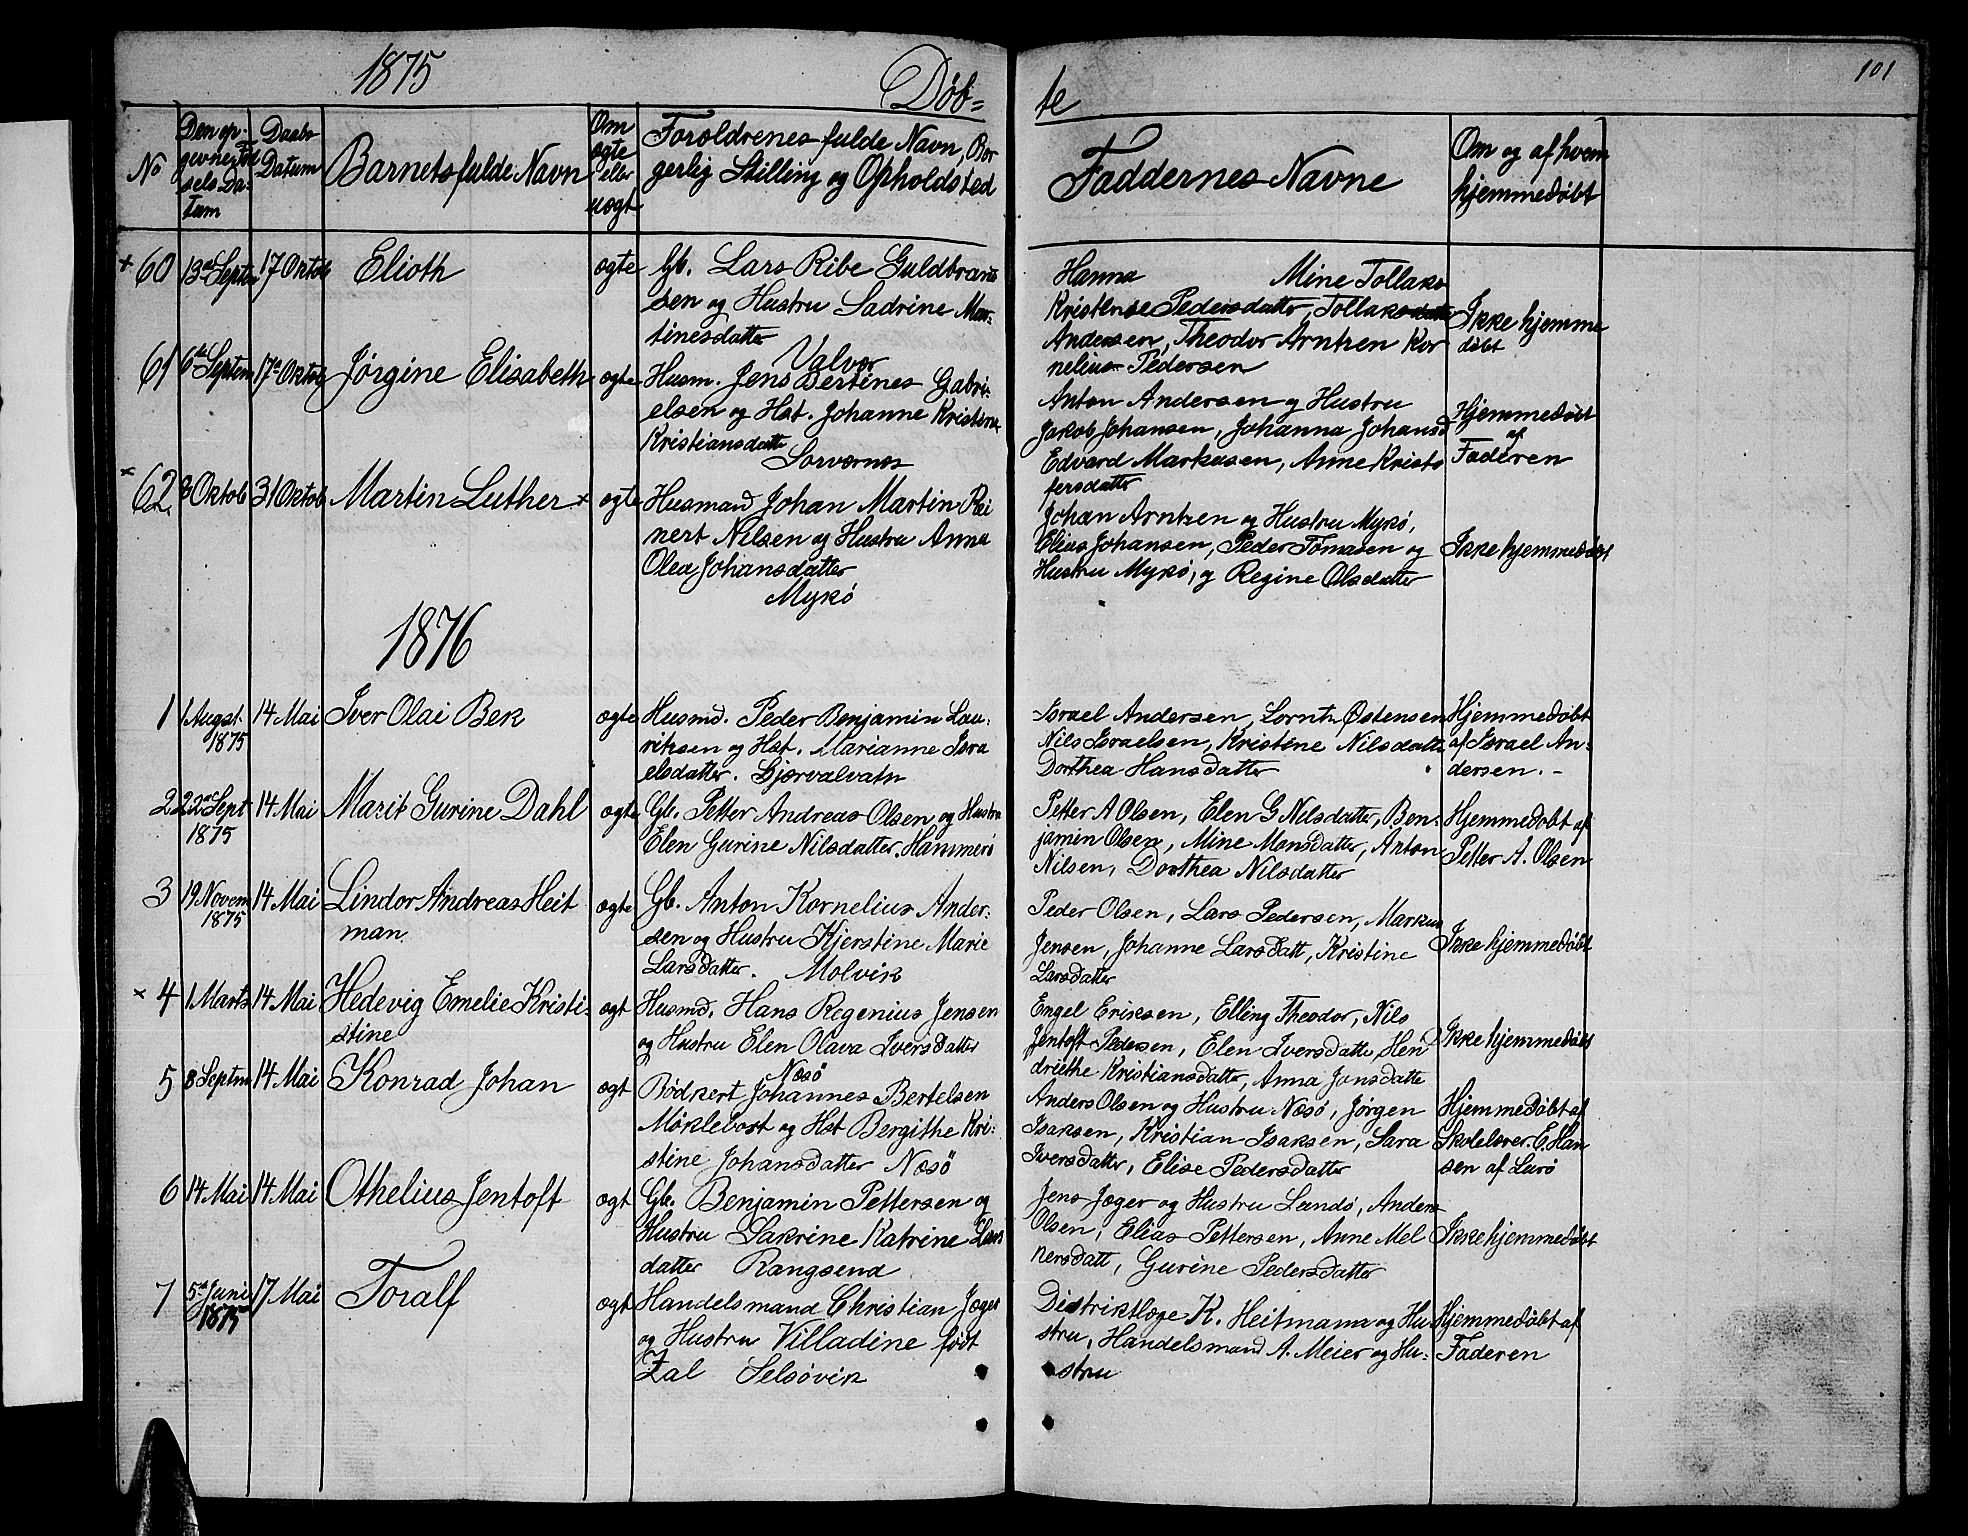 1875
Døb=
te
101
No
Den op-
gevne Fød
sels Da-
tum
Daabs
Datum
Barnets fulde Navn
Om
ægte
eller
uægt
Forældrenes fulde Navn, Bor
gerlig Stilling og Opholdsted
Faddernes Navne
Om og af hvem
hjemmedøbt
+ 60 13de Septbr 17 Oktob Elioth ægte Gb. Lars Ribe Guldbrand
sen og Hustru Sadrine Mar=
tinesdatter
Valvær
Hanna Mine Tollaks
Kristense Pedersdatter, Tollaksdatter
Andersen, Theodor Arntzen Kor
nelius Pedersen
Ikke hjemme
døbt
61 6te Septem 17de Oktob Jørgine Elisabeth ægte Husm. Jens Bertines Gabri-
elsen og Hst. Johanne Kristine
Kristiansdatte
Sørværnes
Anton Andersen og Hustru
Jakob Johansen, Johanna Johansd
Edvard Markusen, Anne Kristo
fersdatter
Hjemmedøbt
af
Faderen
× 62. 8 Oktob 31 Oktob Martin Luther × ægte Husmand Johan Martin Rei
nert Nilsen og Hustru Anna
Olea Johansdatter
Mykø
Johan Arntzen og Hustru Mykø,
Elias Johansen, Peder Tomasen og
Hustru Mykø, og Regine Olsdatter
Ikke hjemmedøbt
1876
1 1 Augst 14 Mai Iver Olai Bek ægte Husmd. Peder Benjamin Lau=
1875
riksen og Hst. Marianne Isra
elsdatter. Gjervalvatn
Israel Andersen, Lornts Østensen
Nils Israelsen, Kristine Nilsdatte
Dorthea Hansdatter
Hjemmedøbt
af Israel An=
dersen. -
2 22de Sept 14 Mai Marit Gurine Dahl ægte Gb. Petter Andreas Olsen og Hustru
1875
Elen Gurine Nilsdatter. Hammerø
Petter A Olsen, Elen G Nilsdatter, Ben=
jamin Olsen, Mine Monsdatter, Anton
Nilsen, Dorthea Nilsdatter
Hjemmedøbt af
Petter A. Olsen
3 19 Novem 14 Mai Lindor Andreas Heit ægte Gb. Anton Kornelius Ander=
1875
man.
sen og Hustru Kjerstine Marie
Larsdatter. Molvik
Peder Olsen, Lars Pedersen, Markus
Jensen, Johanne Larsdatt, Kristine
Larsdatter
Ikke hjemmedøbt
× 4 1 Marts 14 Mai Hedevig Emelie Kristi= ægt Husmd. Hans Regenius Jensen
stine
og Hustru Elen Olava Iversdatter
Næsø
Engel Eriksen, Elling Theodor, Nils
Jentoft Pedersen, Elen Iversdatte, Hen
driethe Kristiansdatter, Anna Jonsdatte
Ikke hjemmedøbt
5 8 Septm 14 Mai Konrad Johan ægt Bødkert Johannes Bertelsen
Mørklebost og Hst Bergithe Kri=
stine Johansdatter Næsö
Anders Olsen og Hustru Næsø, Jørgen
Isaksen, Kristian Isaksen, Sara
Iversdatter, Elise Pedersdatter
Hjemmedøbt af
Skolelærer. E. Han
sen af Lurø
6 14 Mai 14 Mai Othelius Jentoft ægt Gb. Benjamin Pettersen og
Hustru Sakrine Katrine Lars
datter Rangsund
Jens Jæger og Hustru Lundø, Anders
Olsen, Elias Pettersen, Anne Mel
kersdatt, Gurine Pedersdatter
Ikke hjemmedøbt
7 5te Juni 17 Mai Toralf ægt Handelsmand Christian Jæger
1875
og Hustru Villadine født
Zal Selsøvik
Distriktlæge K. Heitmann og Hu
stru, Handelsmand A. Meier og Hu=
stru
Hjemmedøbt af
Faderen